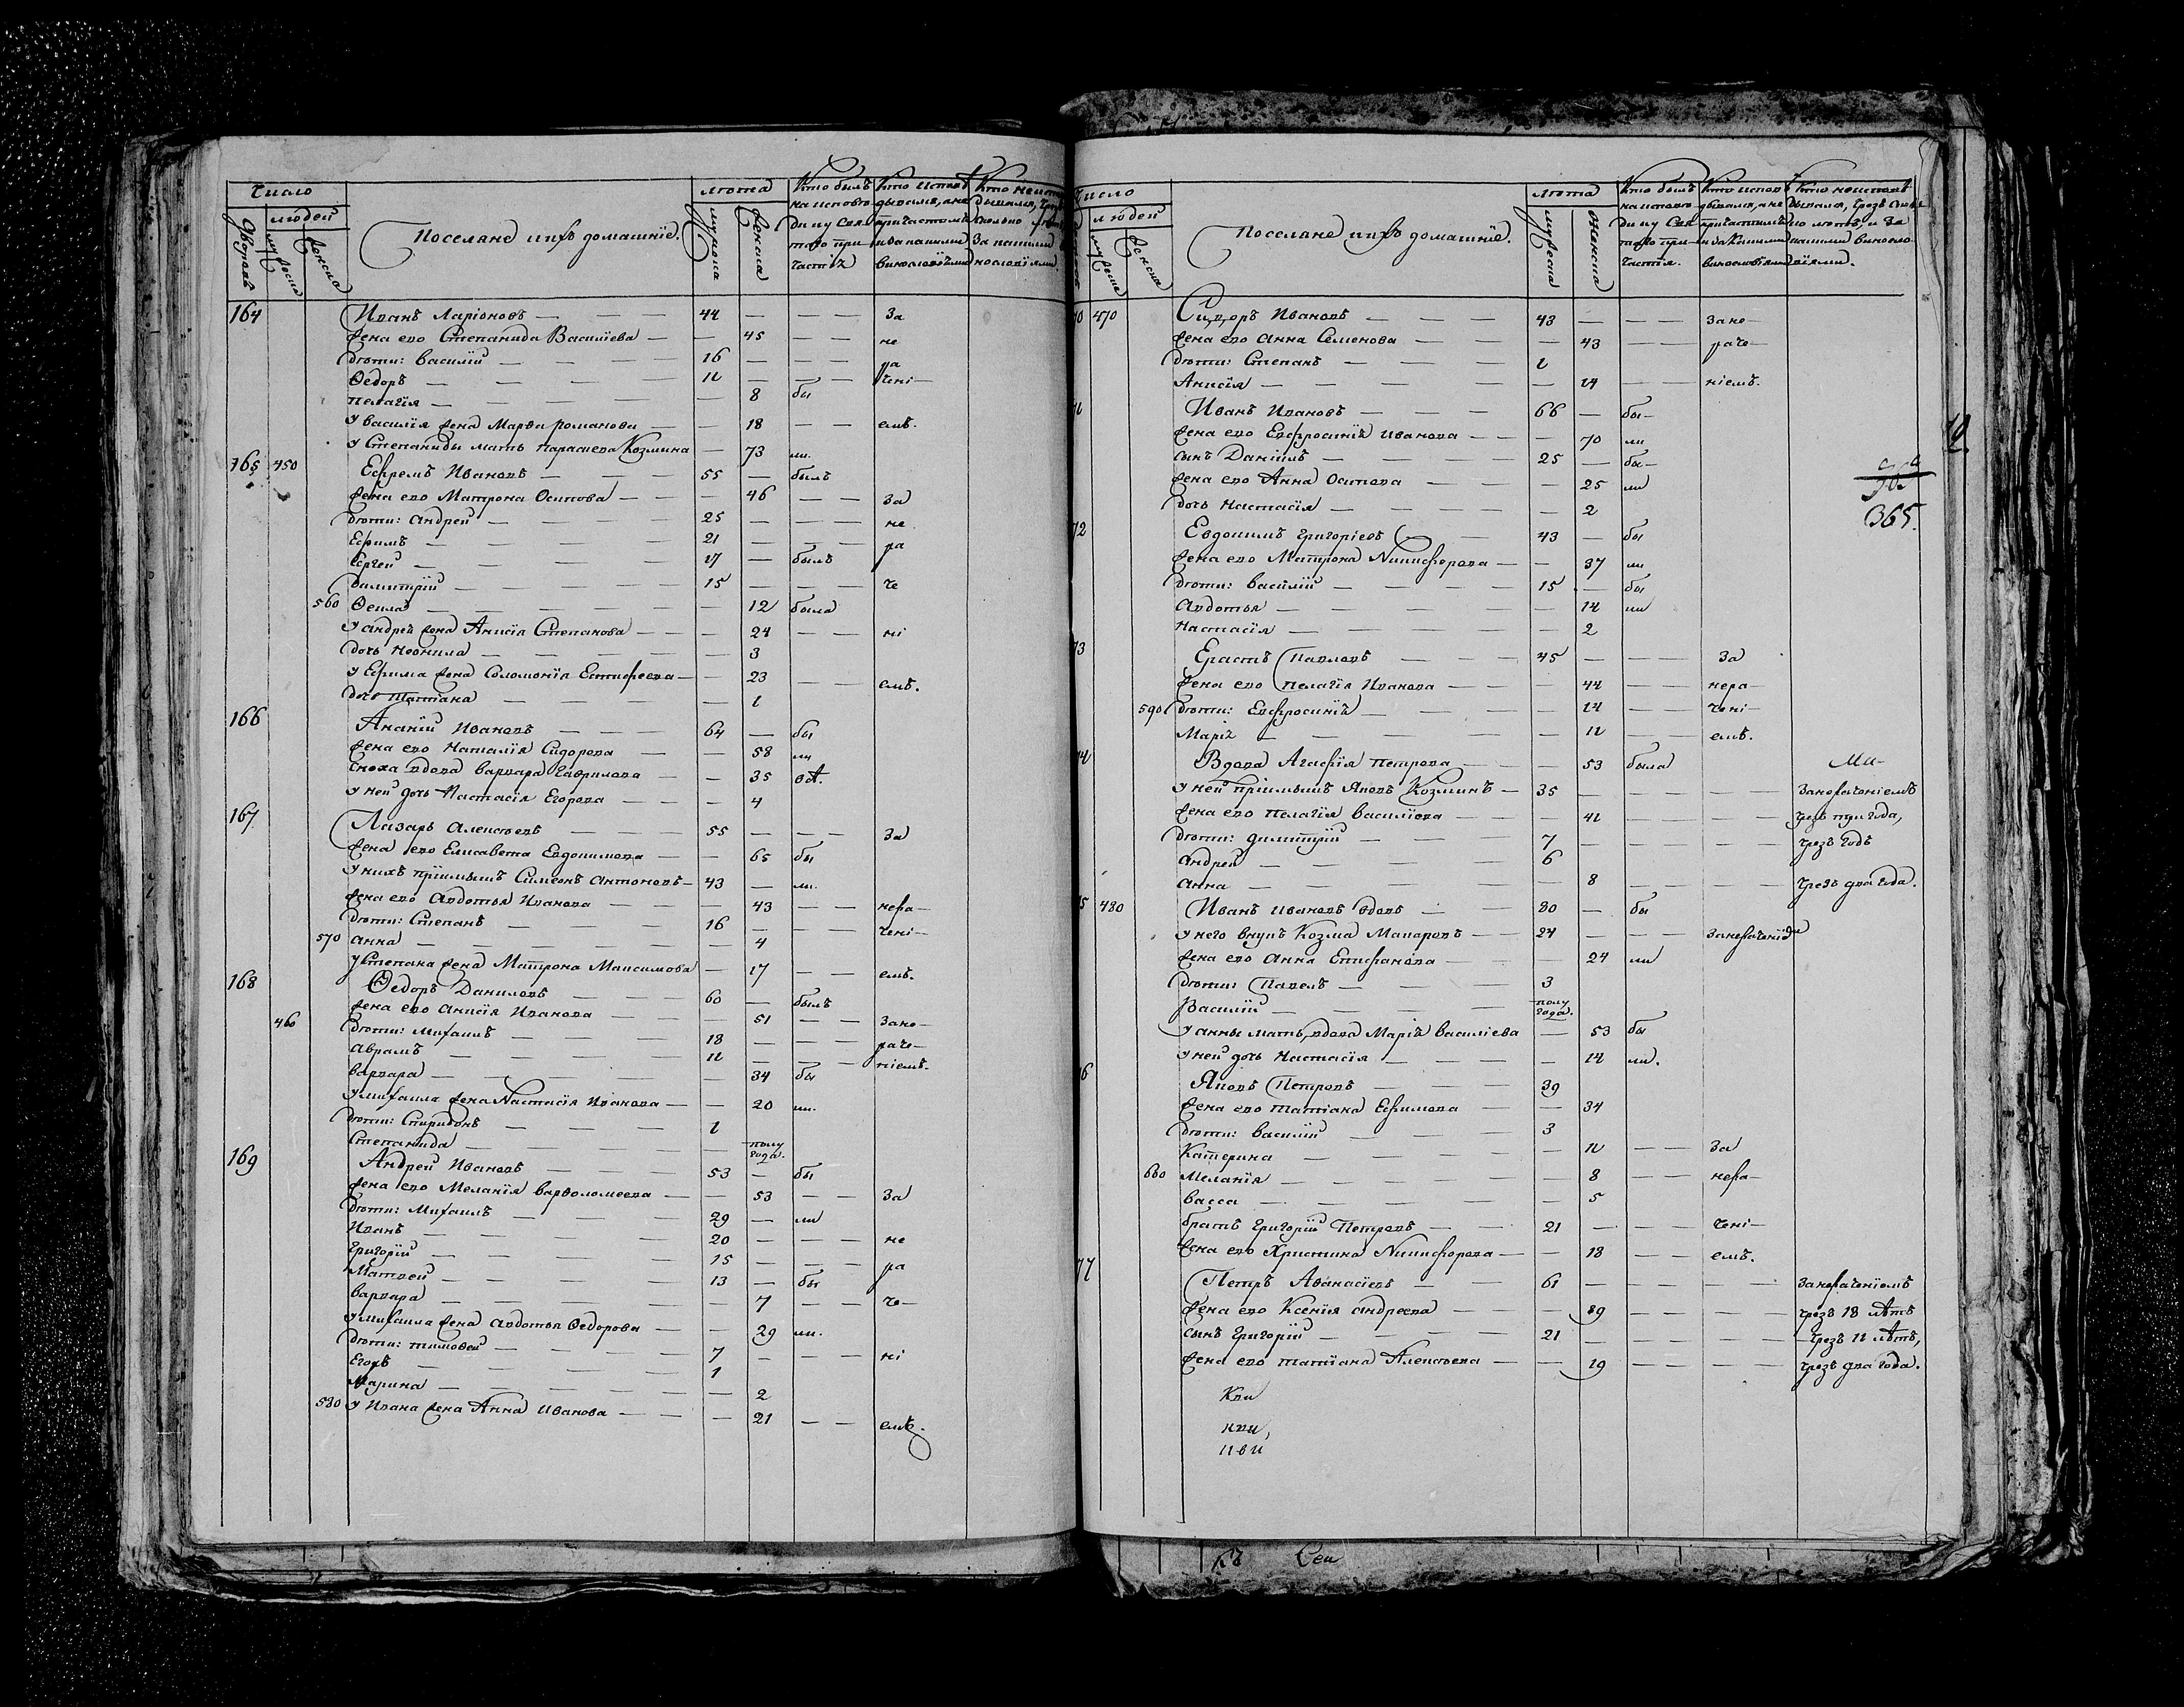 Число
людей
Дворовъ
мужеска
женска
Поселане ихъ домашнїе.
лѣта
мужеска
женска
Кто былъ на исповѣди и у Свя. того причастїя
Кто исповѣдывался, а не причастился и за какими винословїями
164 Иванъ Ларїоновъ — 44 — За
жена его Степанида Василїева — 45 — не
дѣти: Василїй — 16 — ра
Ѳедоръ — 11 — ченї—
Пелагїя — 8 бы
У Василїя жена Марѳа Романова — 18 — емъ.
У Степаниды мать Параскева Козмина — 73 ли.
165 450 Ефремъ Ивановъ — 55 — былъ
жена его Матрона Осипова — 46 — За
дѣти: Андрей — 25 — не
Ефимъ — 21 — ра
Сергей — 17 — былъ
Димитрїй — 15 — че
560 Ѳекла — 12 была
У Андрея жена Анисїя Степанова — 24 — нї
дочь Неонила — 3
У Ефима жена Соломонїя Естифеева — 23 — емъ.
дочь Татїана — 1
166 Ананїй Ивановъ — 64 — бы
жена его Наталїя Сидорова — 58 ли
сноха вдова Варвара Гаврилова — 35
У ней дочь Настасїя Егорова — 4
167 Лазарь Алексѣевъ — 55 — За
жена его Елисавета Евдокимова — 65 бы
У нихъ прїимышъ Симеонъ Антоновъ — 43 — ли.
жена его Авдотья Иванова — 43 — нера—
дѣти: Степанъ — 16 — ченї—
570 Анна — 4
У Степана жена Матрона Максимова — 17 — емъ.
168 Ѳедоръ Даниловъ — 60 — былъ
жена его Анисїя Иванова — 51 — Зане—
460 дѣти: Михаилъ — 18 — раче—
Аврамъ — 11 — нїемъ.
Варвара — 34 бы
У Михаила жена Настасїя Иванова — 20 ли.
дѣти: Спиридонъ — 1
Степанида — полу года.
169 Андрей Ивановъ — 53 — бы
жена его Меланїя Варѳоломеева — 53 — За
дѣти: Михаилъ — 29 — ли
Иванъ — 20 — не
Григорїй — 15 — ра
Матвей — 13 — бы
Варвара — 7 — че—
У Михаила жена Авдотья Ѳедорова — 29 ли.
дѣти: Тимоѳей — 7 — нї
Егоръ — 1
Марина — 2
580 У Ивана жена Анна Иванова — 21 — емъ.
Число
людей
мужеска
женска
Поселане ихъ домашнїе.
лѣта
мужеска
женска
Кто былъ на исповѣди и у Свя. того причастїя.
Кто исповѣдывался, а не причастился и за какими винословїями
Кто не исповѣдывался, чрезъ сколько лѣтъ, и за какими винословїями.
70 470 Сидоръ Ивановъ — 43 — Зане—
жена его Анна Семенова — 43 — раче—
дѣти: Степанъ — 1
Анисїя — 14 — нїемъ.
71 Иванъ Ивановъ — 66 — бы—
жена его Евфросинїя Иванова — 70 ли
сынъ Данїилъ — 25 — бы—
жена его Анна Осипова — 25 ли
дочь Настасїя — 2
365.
72 Евдокимъ Григорїевъ — 43 — бы
жена его Матрона Никифорова — 37 ли
дѣти: Василїй — 15 — бы
Авдотья — 14 ли
Настасїя — 2
73 Ерастъ Павловъ — 45 — За
жена его Пелагїя Иванова — 44 — нера—
590 дѣти: Евфросинїя — 14 — ченї—
Марїя — 11 — емъ.
74 Вдова Агафїя Петрова — 53 была
У ней прїимышъ Яковъ Козминъ — 35 — Занераченїемъ
жена его Пелагїя Василїева — 41 — чрезъ три года,
дѣти: Димитрїй — 7 — чрезъ годъ
Андрей — 6
Анна — 8 — чрезъ два года.
75 480 Иванъ Ивановъ вдовъ — 80 — бы
У него внукъ Козма Макаровъ — 24 — Занераченїемъ
жена его Анна Епифанова — 24 ли
дѣти: Павелъ — 3
Василїй — полу года.
У Анны мать, вдова Марїя Василїева — 53 бы
У ней дочь Настасїя — 14 ли.
76 Яковъ Петровъ — 39
жена его Татїана Ефимова — 34
дѣти: Василїй — 3
Катерина — 11 — За
600 Меланїя — 8 — нера—
Васса — 5
братъ Григорїй Петровъ — 21 — ченї—
жена его Христина Никифорова — 18 — емъ.
77 Петръ Аѳанасїевъ — 61 — Занераченїемъ
жена его Ксенїя Андреева — 59 — чрезъ 18 лѣтъ
сынъ Григорїй — 21 — чрезъ 11 лѣтъ,
жена его Татїана Алексѣева — 19 — чрезъ два года.